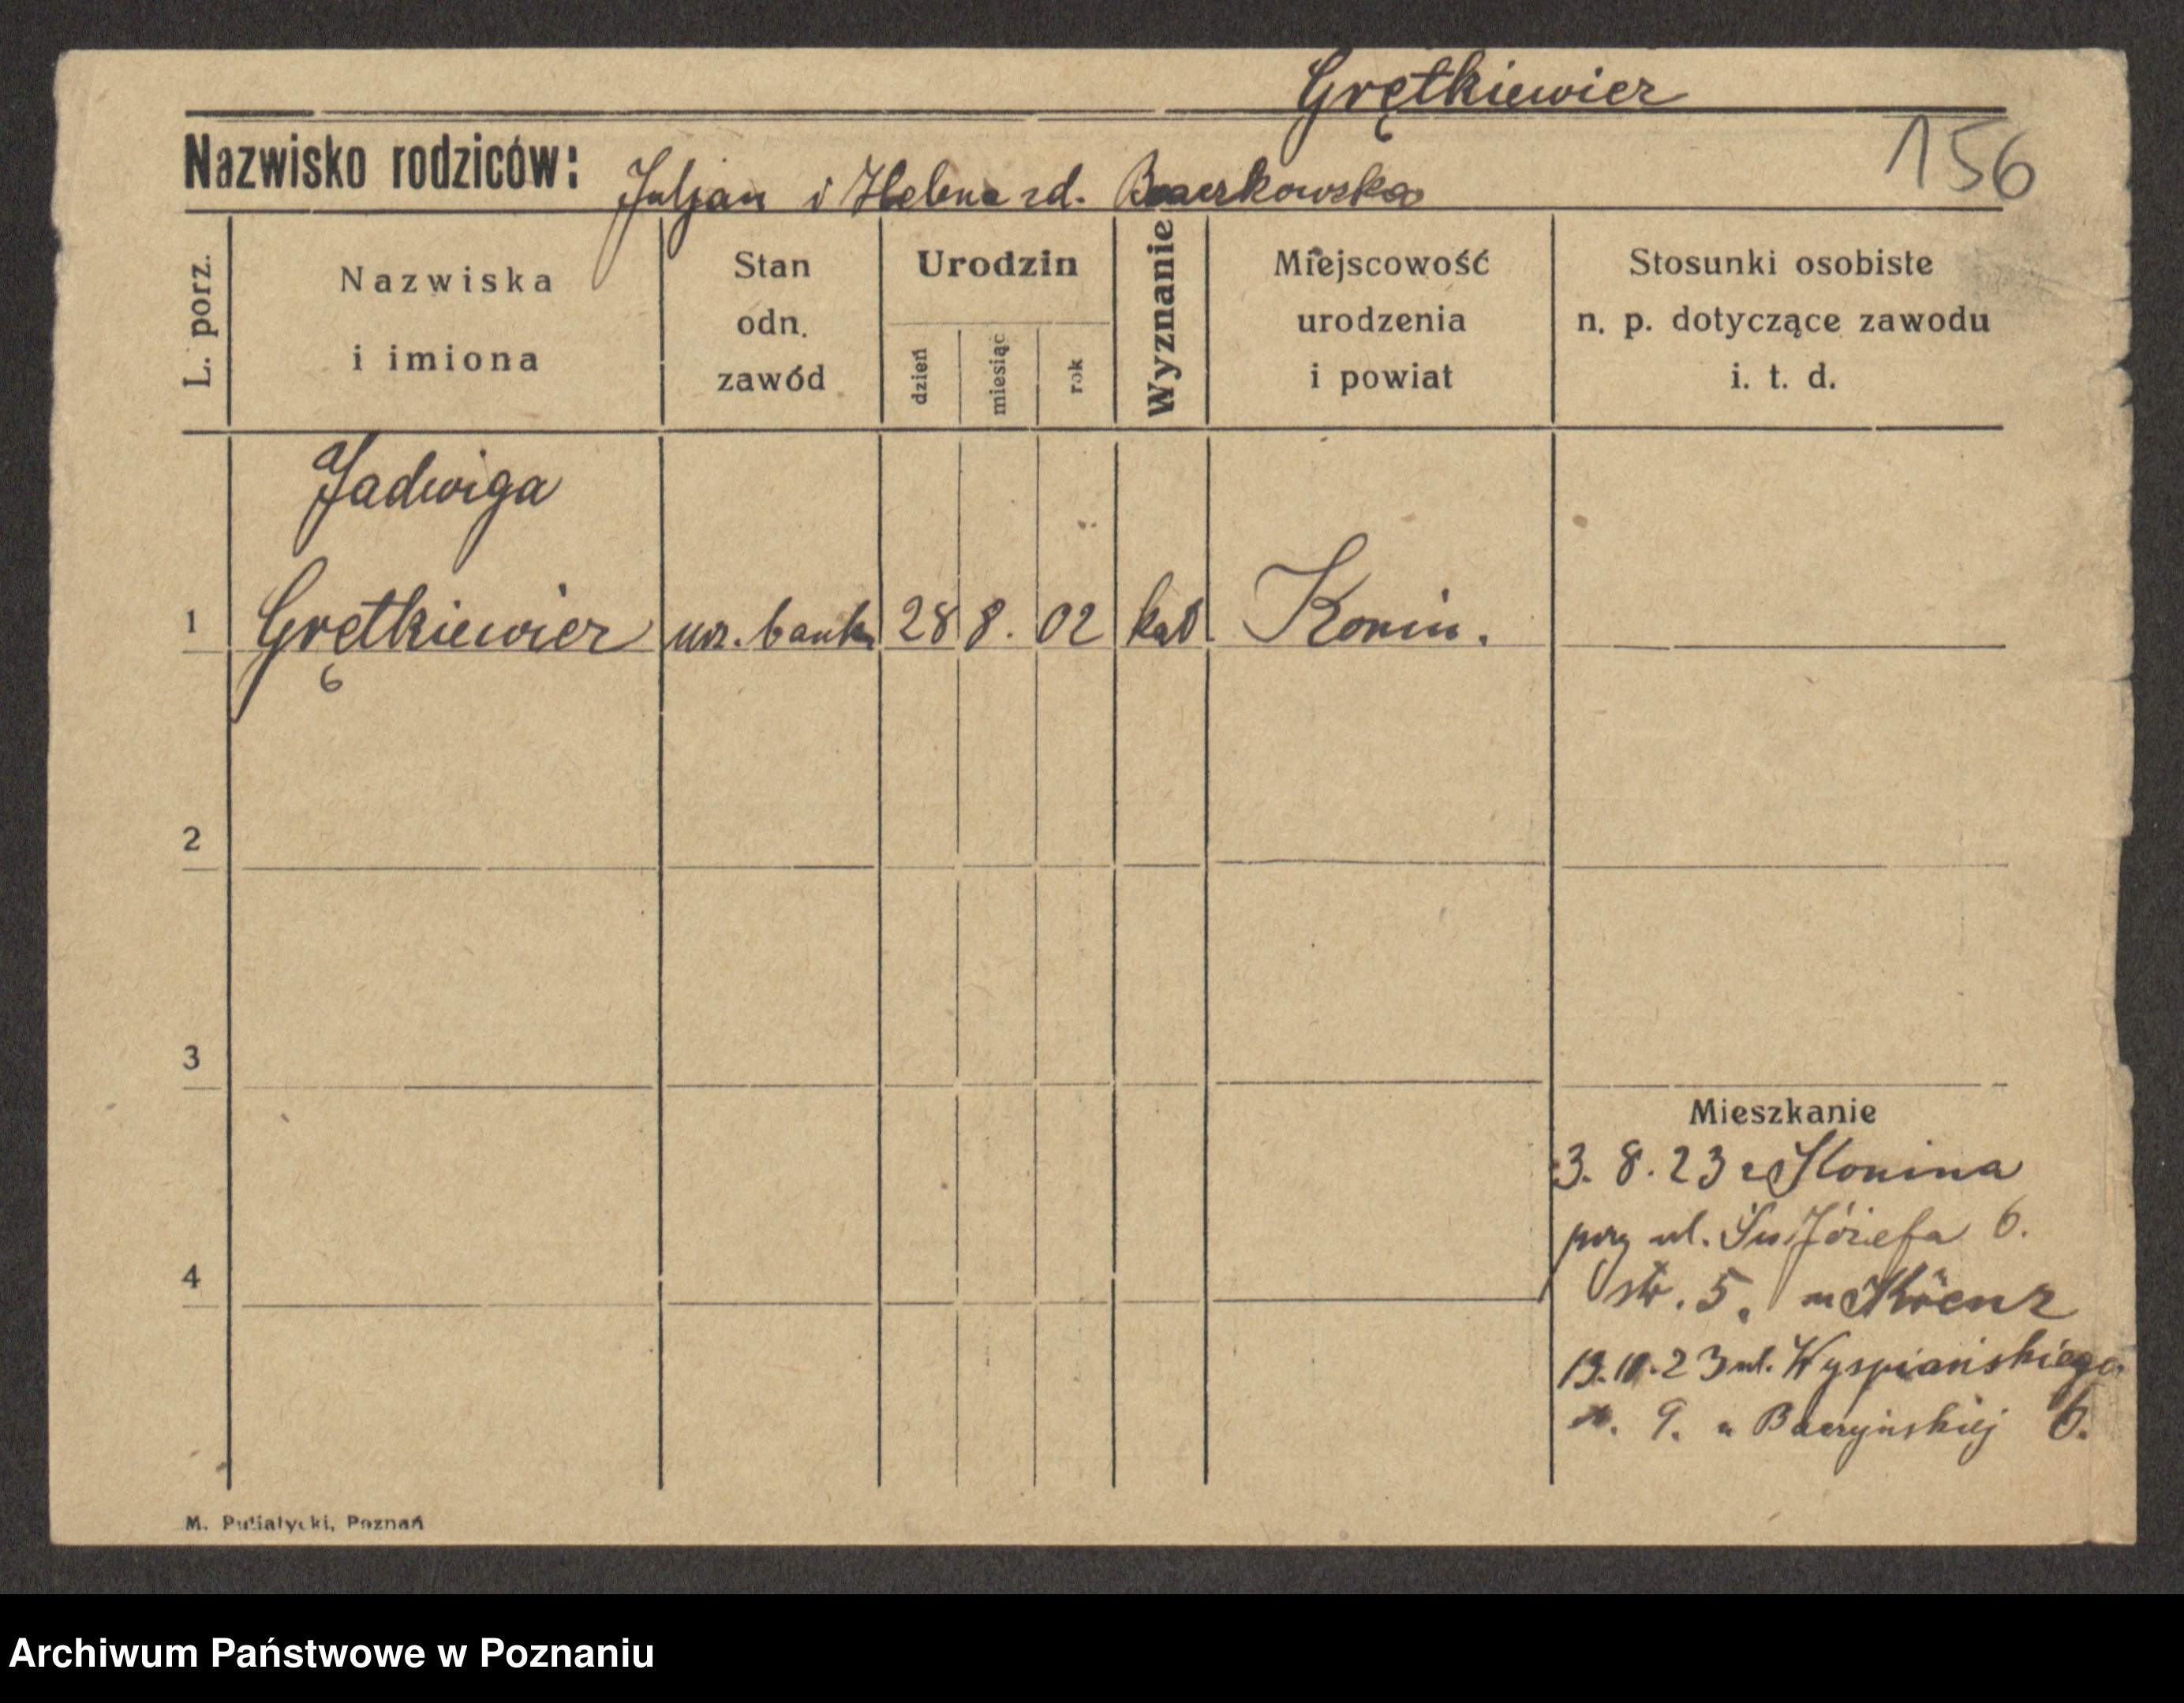 Grętkiewicz
156
Nazwisko rodziców: Juljan i Helena zd.
L. porz.
Nazwiska
i imiona
Stan
odn.
zawód
Urodzin
dzień
miesiąc
rok
Wyznanie
Miejscowość
urodzenia
i powiat
Stosunki osobiste
n. p. dotyczące zawodu
i. t. d.
Jadwiga
1 Grętkiewicz urz. bank. 28 8. 02 kat. Konin.
2
3
Mieszkanie
3. 8. 23 z Konina
przy ul. Św. Józefa 6.
4
str. 5. u
ul. Wyspiańskiego
9. u Baczyńskiej 6.
M. Putiatycki, Poznań
Archiwum Państwowe w Poznaniu